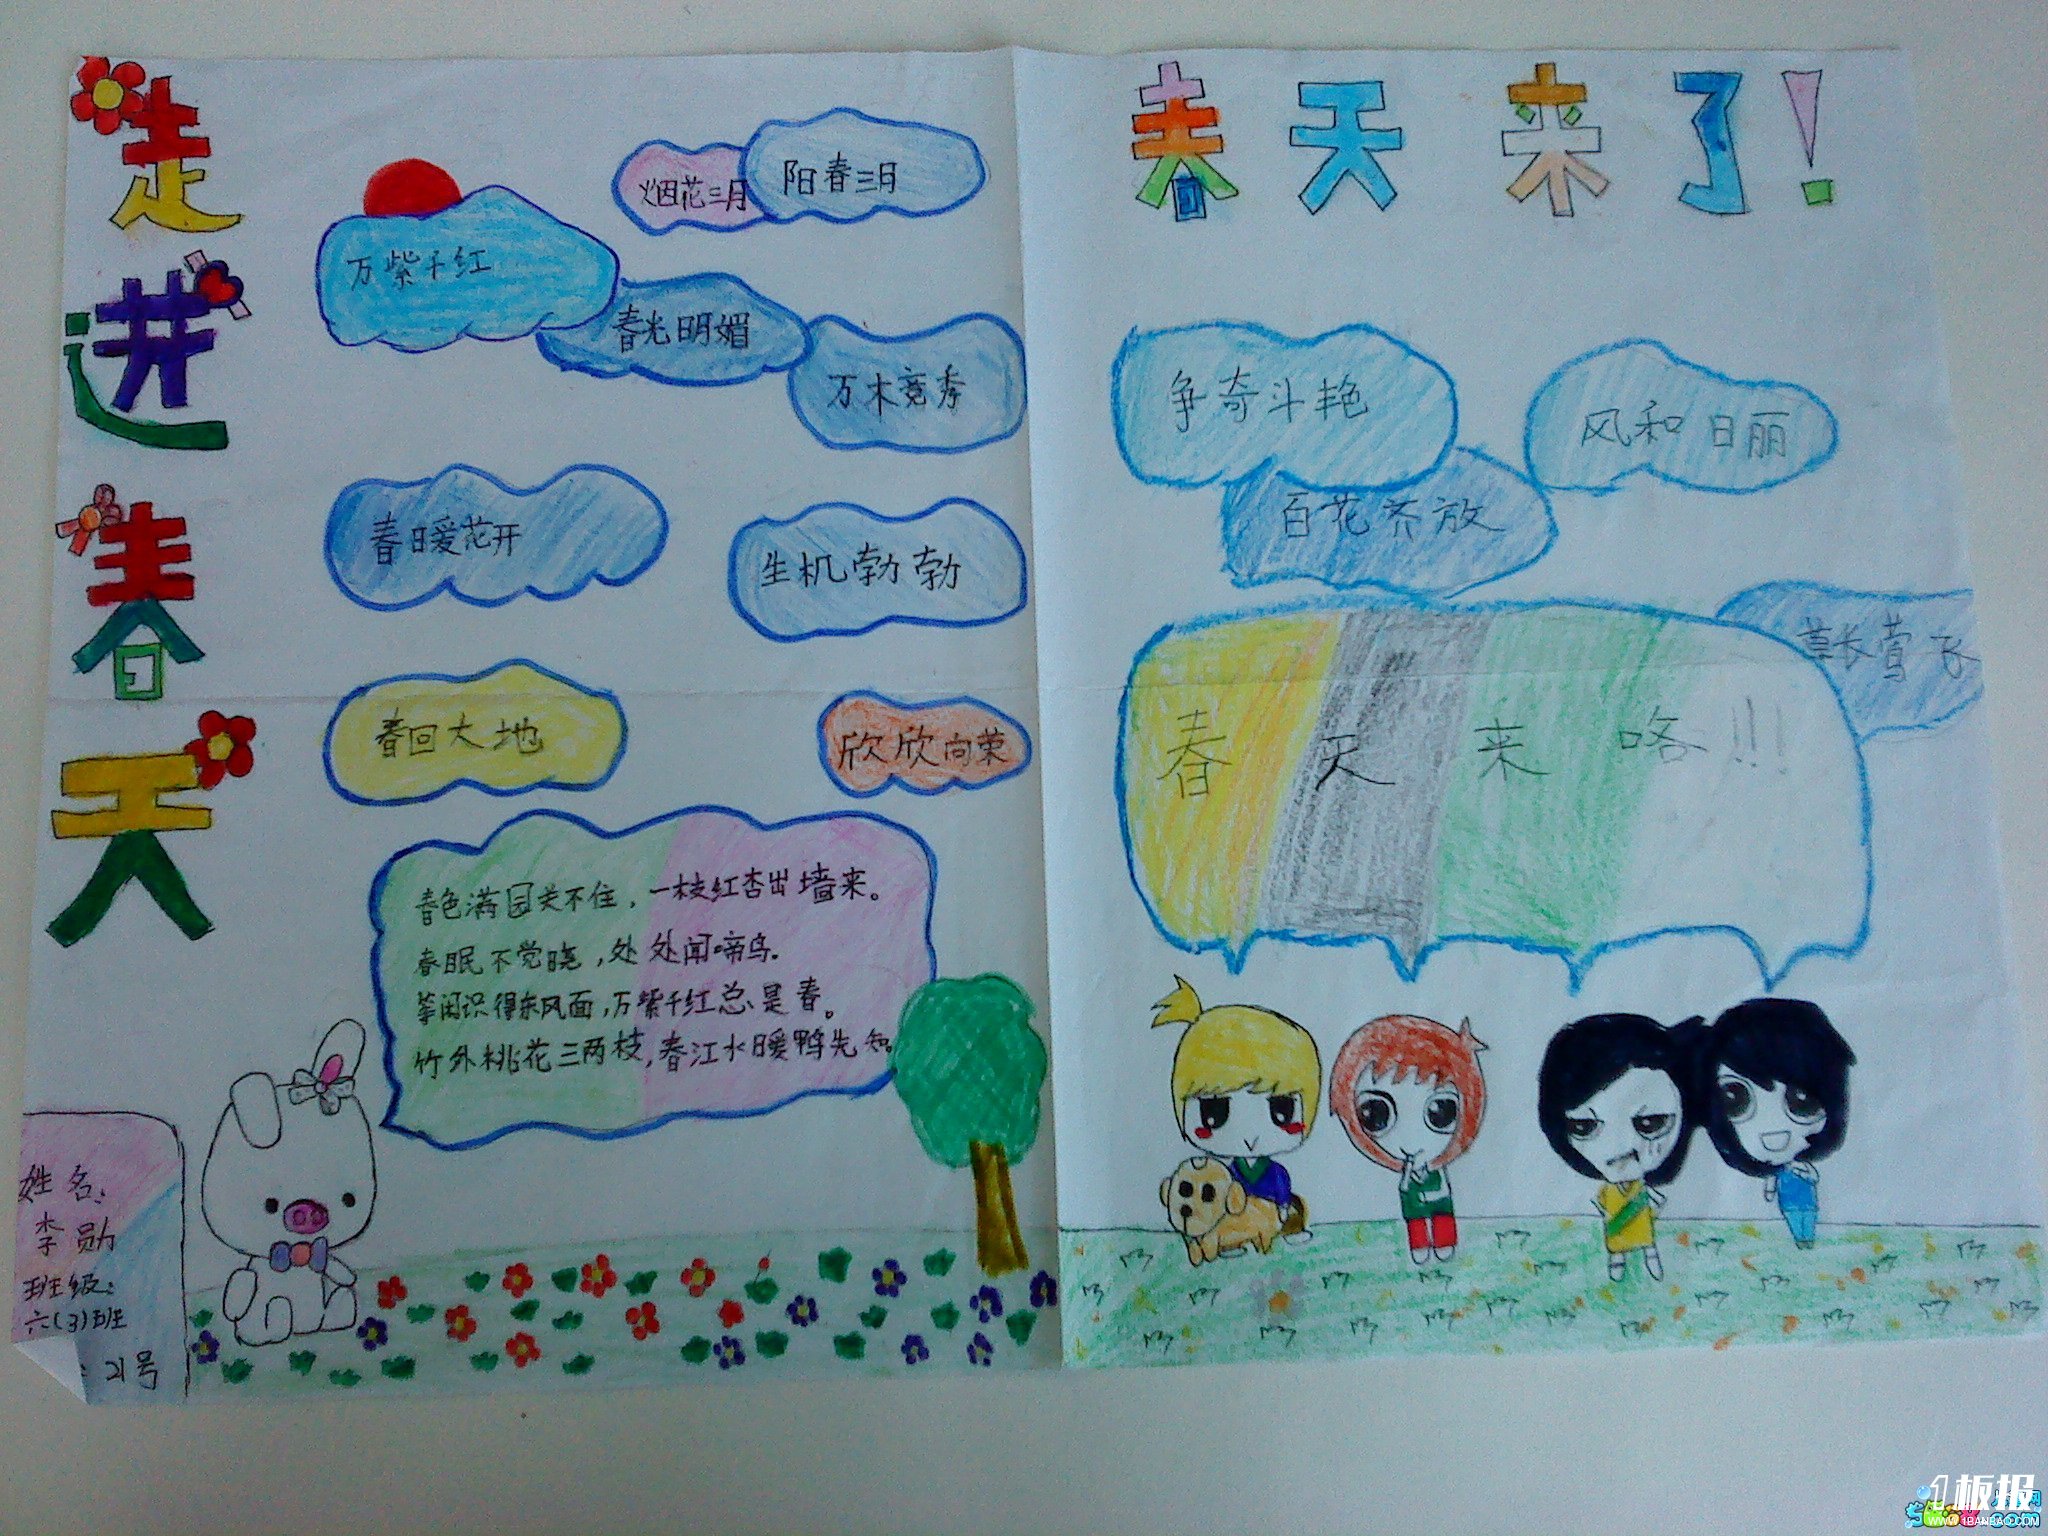 走进春天
春天来了!
烟花三月
阳春三月
万紫千红
春光明媚
万木竞秀
春日暖花开
生机勃勃
春回大地
欣欣向荣
春色满园关不住，一枝红杏出墙来。
春眠不觉晓，处处闻啼鸟.
等闲识得东风面，万紫千红总是春。
竹外桃花三两枝，春江水暖鸭先知.
姓名:
李勋
班级:
六(3)班
: 21号
争奇斗艳
风和日丽
百花齐放
草长莺飞
春天来咯!!!
1板报
WWW.1BANBAO.COM